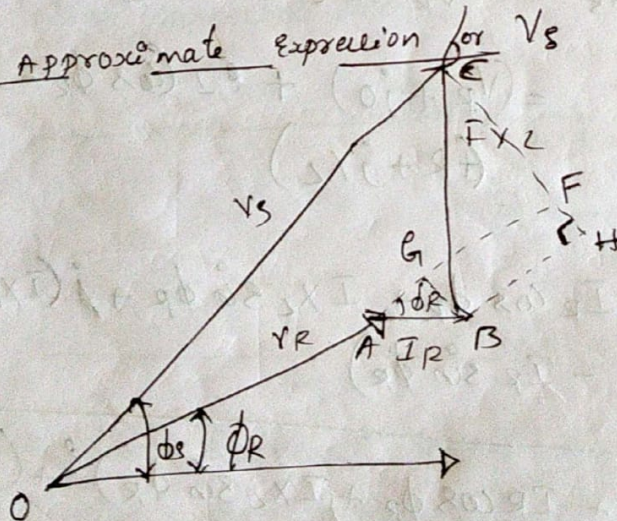 Approximate Expression for Vs
E
IXL
F
H
Vs
G
ϕR
VR
A
IR
B
ϕs
ϕR
O